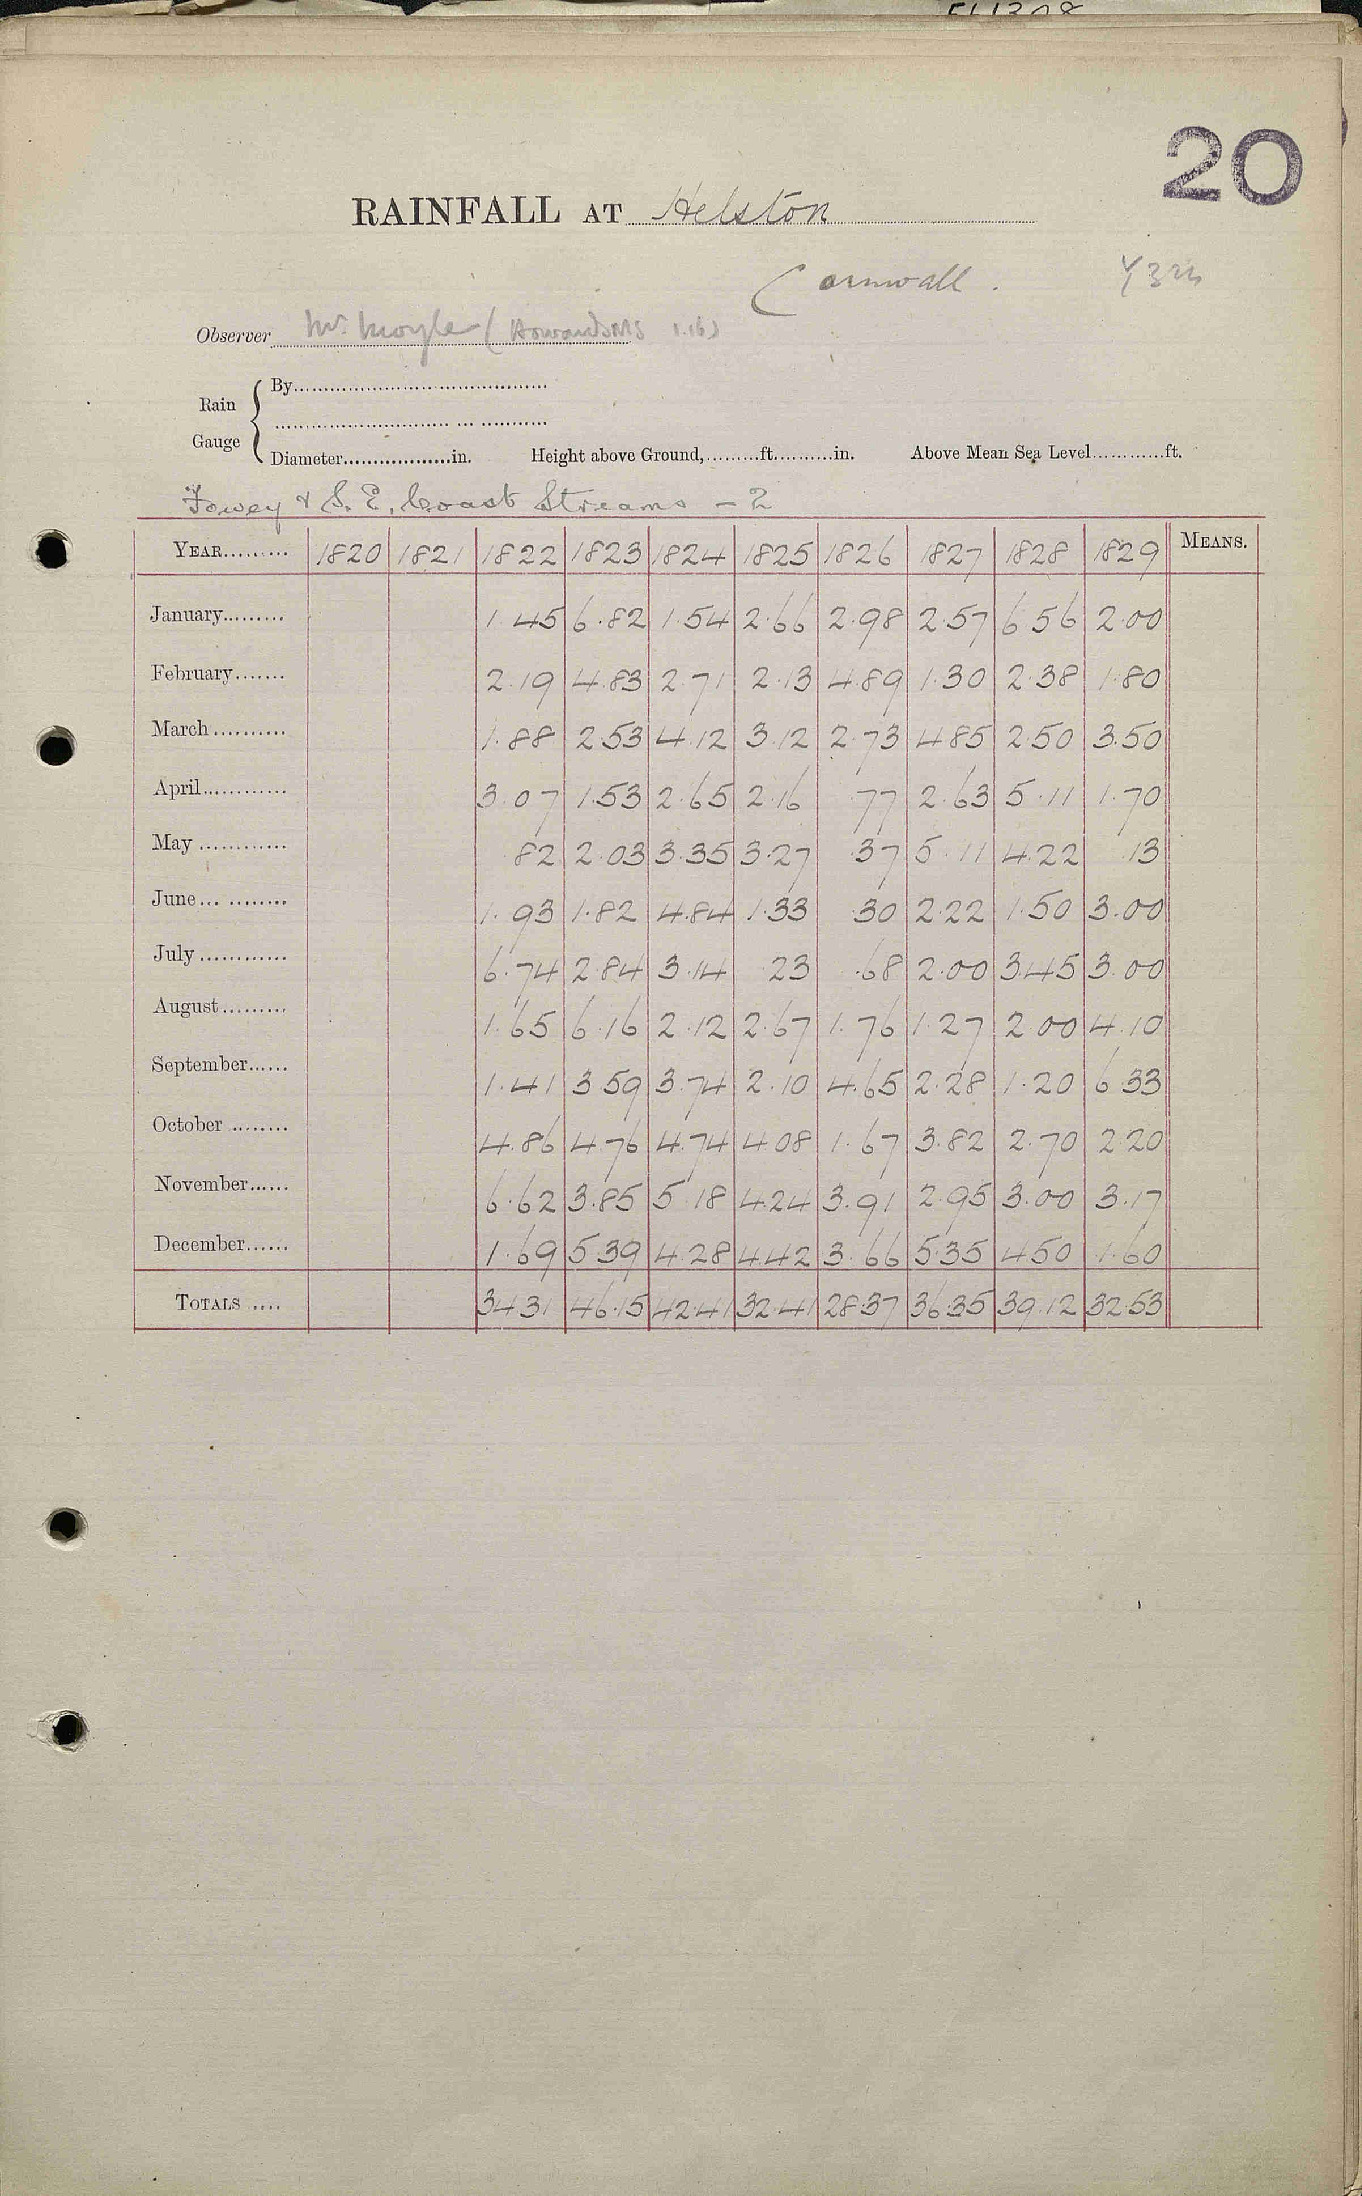 20
RAINFALL AT Helston
Cornwall.
Observer Mr. Moyle (Howard MS 1.16)
Rain Gauge { By
Diameter in. Height above Ground, ft. in. Above Mean Sea Level ft.
Fowey & S.E. Coast Streams - 2
YEAR 1820 1821 1822 1823 1824 1825 1826 1827 1828 1829 MEANS.
January 1.45 6.82 1.54 2.66 2.98 2.57 6 56 2.00
February 2.19 4.83 2.71 2.13 4.89 1.30 2.38 1.80
March 1.88 2.53 4.12 3.12 2.73 4.85 2.50 3.50
April 3.07 1.53 2.65 2.16 .77 2.63 5.11 1.70
May .82 2.03 3.35 3.27 .37 5.11 4.22 .13
June 1.93 1.82 4.84 1.33 .30 2.22 1.50 3.00
July 6.74 2.84 3.14 .23 .68 2.00 3.45 3.00
August 1.65 6.16 2.12 2.67 1.76 1.27 2 00 4.10
September 1.41 3 59 3.74 2.10 4.65 2.28 1.20 6 33
October 4.86 4.76 4.74 4.08 1.67 3.82 2.70 2.20
November 6.62 3.85 5.18 4.24 3.91 2.95 3.00 3.17
December 1.69 5.39 4.28 4.42 3.66 5.35 4.50 1.60
TOTALS 34.31 46.15 42.41 32.41 28.37 36.35 39.12 32.53